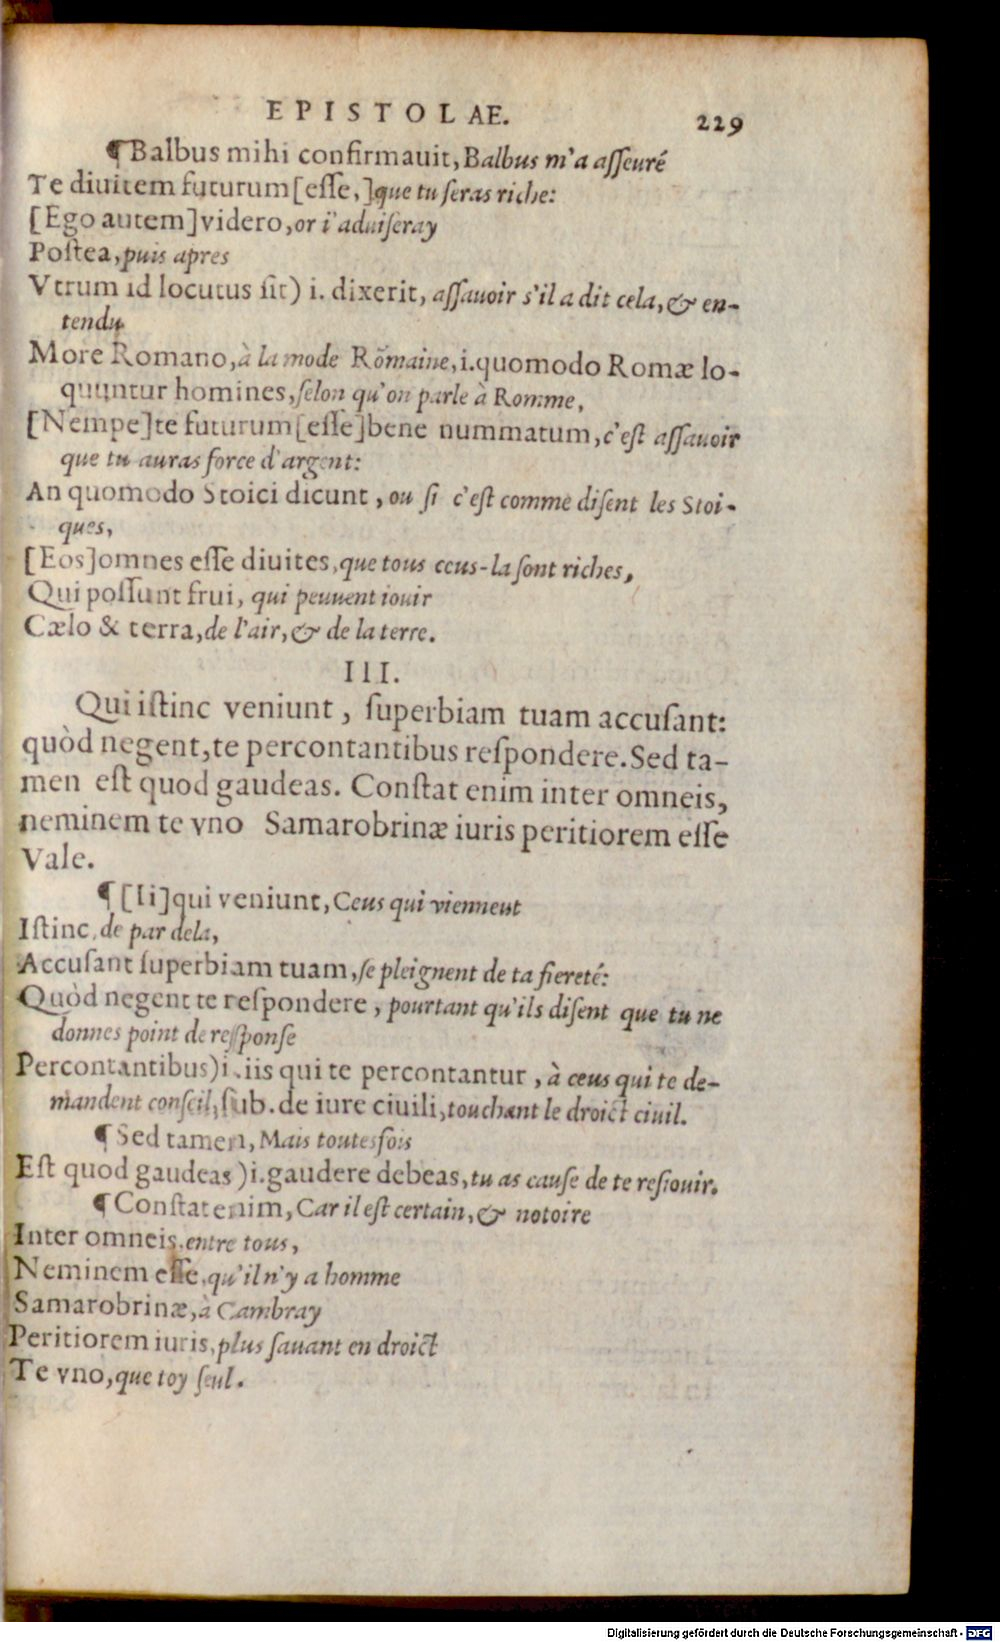 EPISTOLAE. 229
¶ Balbus mihi confirmauit, Balbus m'a aſſeuré
Te diuitem futurum [eſſe,] que tu ſeras riche:
[Ego autem] videro, or i'aduiſeray
Poſtea, puis apres
Vtrum id locutus ſit) i. dixerit, aſſauoir s'il a dit cela, & en-
tendu
More Romano, à la mode Romaine, i. quomodo Romæ lo-
quuntur homines, ſelon qu'on parle à Romme,
[Nempe] te futurum [eſſe] bene nummatum, c'eſt aſſauoir
que tu auras force d'argent:
An quomodo Stoici dicunt, ou ſi c'eſt comme diſent les Stoi-
ques,
[Eos] omnes eſſe diuites, que tous ceus-la ſont riches,
Qui poſſunt frui, qui peuuent iouir
Cælo & terra, de l'air, & de la terre.
III.
Qui iſtinc veniunt, ſuperbiam tuam accuſant:
quòd negent, te percontantibus reſpondere. Sed ta-
men eſt quod gaudeas. Conſtat enim inter omneis,
neminem te vno Samarobrinæ iuris peritiorem eſſe
Vale.
¶ [Ii] qui veniunt, Ceus qui viennent
Iſtinc, de par dela,
Accuſant ſuperbiam tuam, ſe pleignent de ta fiereté:
Quòd negent te reſpondere, pourtant qu'ils diſent que tu ne
donnes point de reſponſe
Percontantibus) i. iis qui te percontantur, à ceus qui te de-
mandent conſeil, ſub. de iure ciuili, touchant le droict ciuil.
¶ Sed tamen, Mais toutesfois
Eſt quod gaudeas) i. gaudere debeas, tu as cauſe de te reſiouir.
¶ Conſtat enim, Car il eſt certain, & notoire
Inter omneis, entre tous,
Neminem eſſe, qu'il n'y a homme
Samarobrinæ, à Cambray
Peritiorem iuris, plus ſauant en droict
Te vno, que toy ſeul.
Digitalisierung gefördert durch die Deutsche Forschungsgemeinschaft - DFG